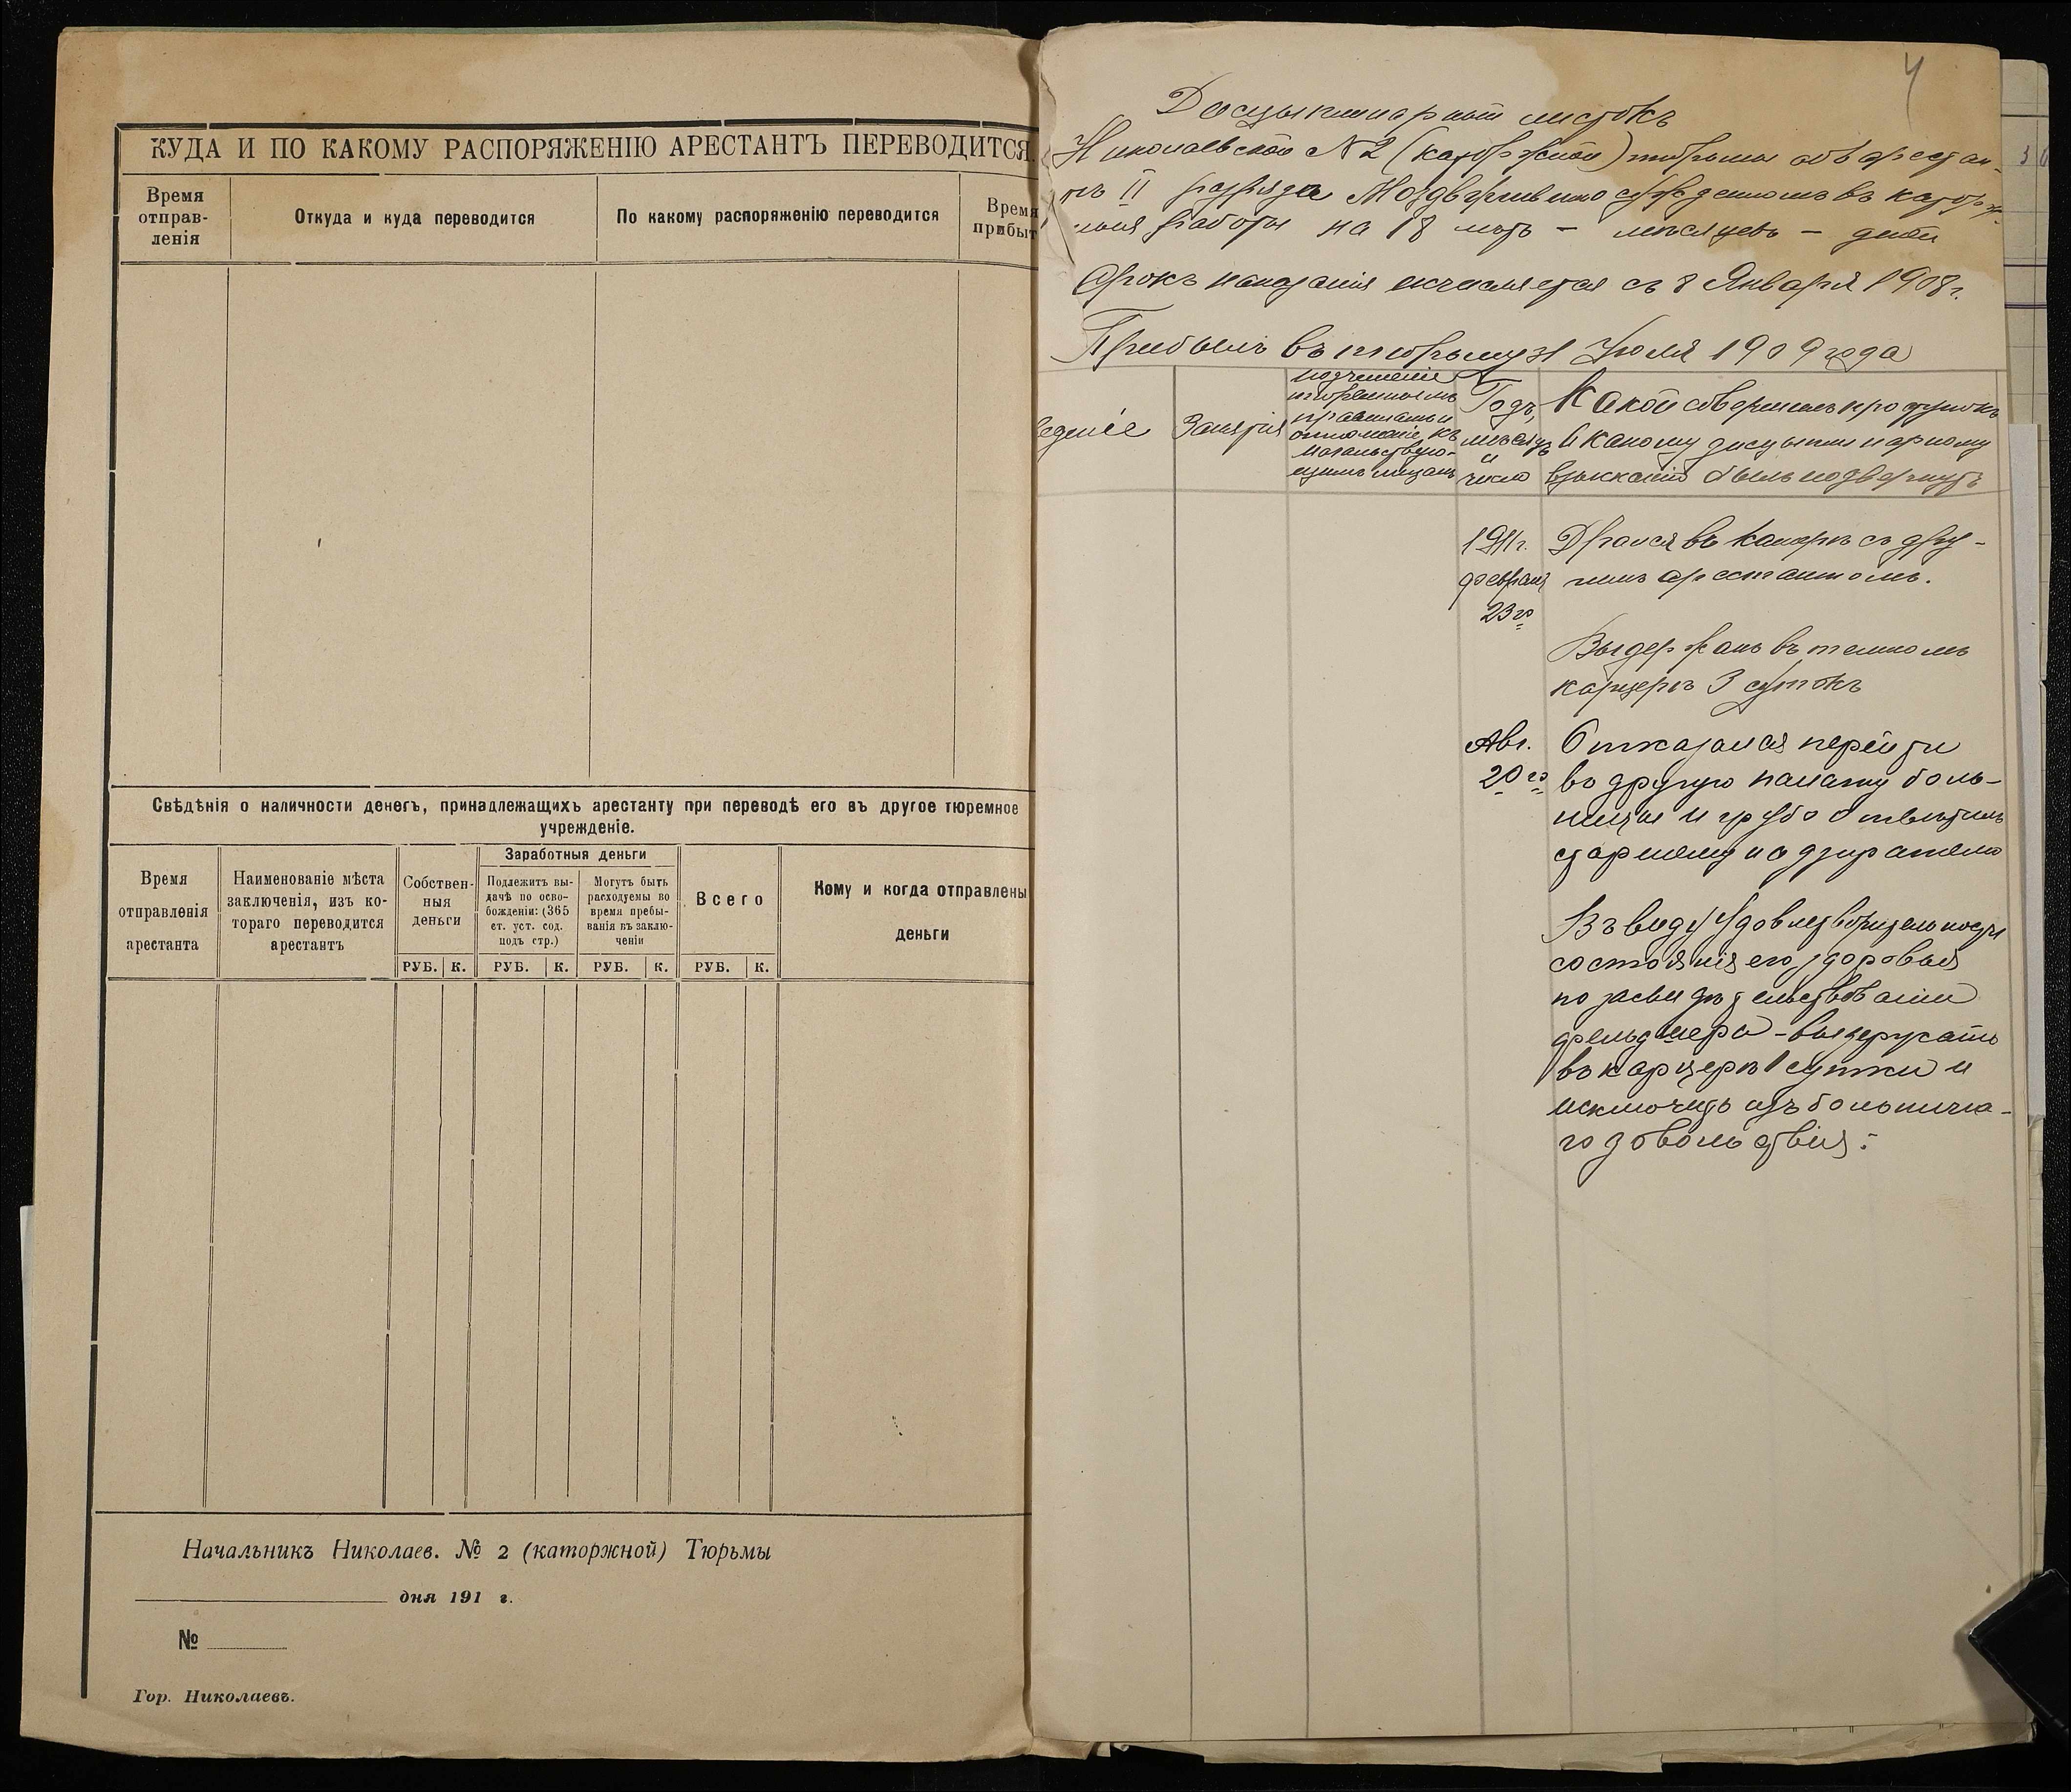 КУДА И ПО КАКОМУ РАСПОРЯЖЕНІЮ АРЕСТАНТЪ ПЕРЕВОДИТСЯ
Время
отправ-
ленія
Откуда и куда переводится
По какому распоряженію переводится
Время
прибыт
Свѣдѣнія о наличности денегъ, принадлежащихъ арестанту при переводѣ его въ другое тюремное
учрежденіе.
Время
отправленія
арестанта
Наименованіе мѣста
заключенія, изъ ко-
тораго переводится
арестантъ
Собствен-
ныя
деньги
Заработныя деньги
Подлежитъ вы-
дачѣ по осво-
божденіи: (365
ст. уст. сод.
подъ стр.)
Могутъ быть
расходуемы во
время пребы-
ванія въ заклю-
ченіи
Всего
Кому и когда отправлены
деньги
РУБ. К. РУБ. К. РУБ. К. РУБ. К.
Начальникъ Николаев. № 2 (каторжной) Тюрьмы
дня 191 г.
№
Гор. Николаевъ.
4
Дисцыплинарный листокъ
Николаевской № 2 (каторжной) тюрьмы объ арестан-
тѣ II разряда осужденномъ въ каторж-
ныя работы на 18 лѣтъ – мѣсяцевъ – дней
Срокъ наказанія исчисляется съ 8 Января 1908 г.
Прибылъ въ тюрьму 31 Іюля 1909 года
веденіе
Занятія
подчиненіе
тюремнымъ
правиламъ и
отношеніе къ
начальствую-
щимъ лицамъ
Годъ,
мѣсяцъ
и
число
Какой совершилъ проступокъ
и какому дисцыплинарному
взысканію былъ подвергнутъ
1911 г.
февраля
23го
Дрался въ камерѣ съ дру-
гимъ арестантомъ.
Выдержанъ въ темномъ
карцерѣ 3 сутокъ
Авг.
20го
Отказался перейти
въ другую палату боль-
ницы и грубо отвѣтилъ
старшему надзирателю
Въ виду удовлетворительности
состоянія его здоровья
по засвидѣтельствованіи
фельдшера – выдержать
въ карцерѣ 1 сутки и
исключить изъ больнична-
го довольствія.